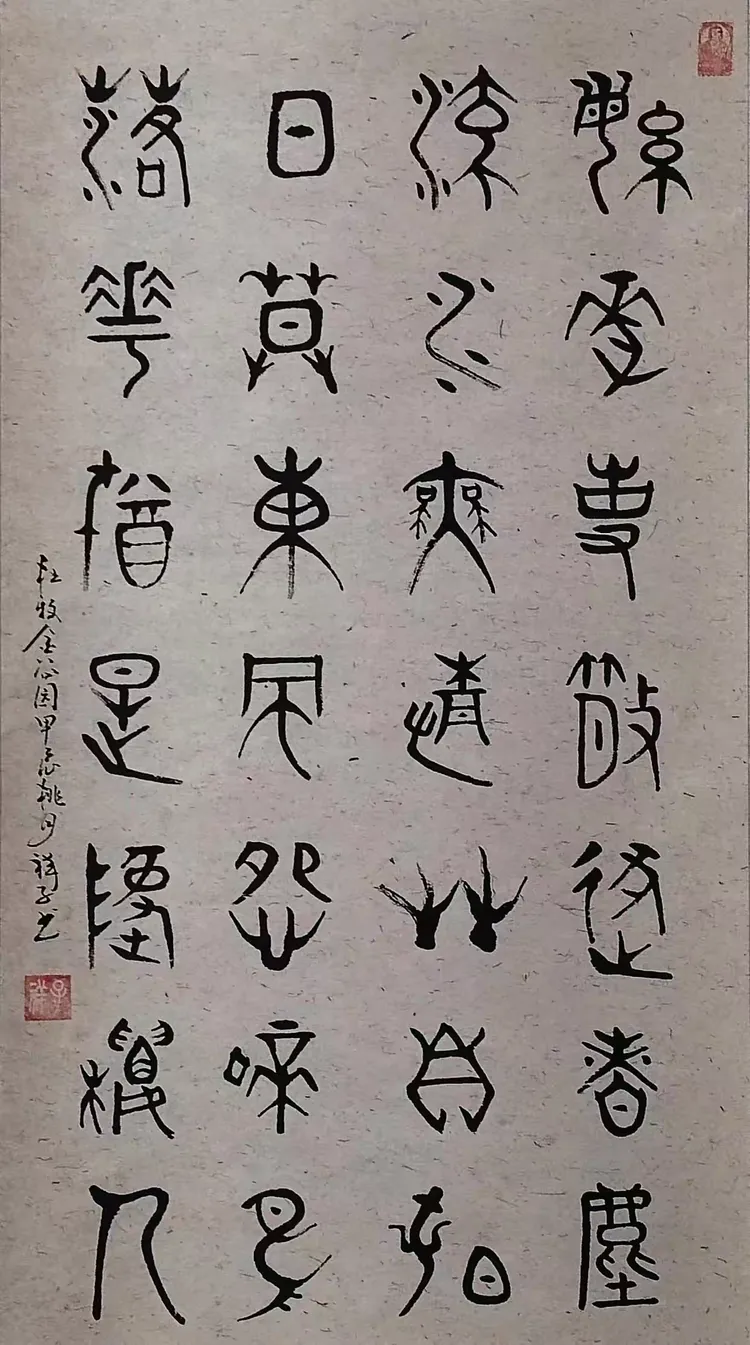 繁華事散逐香塵
流水無情草自春
日莫東風怨啼鳥
落花猶是墜樓人
杜牧金谷园甲辰桃月祥子书